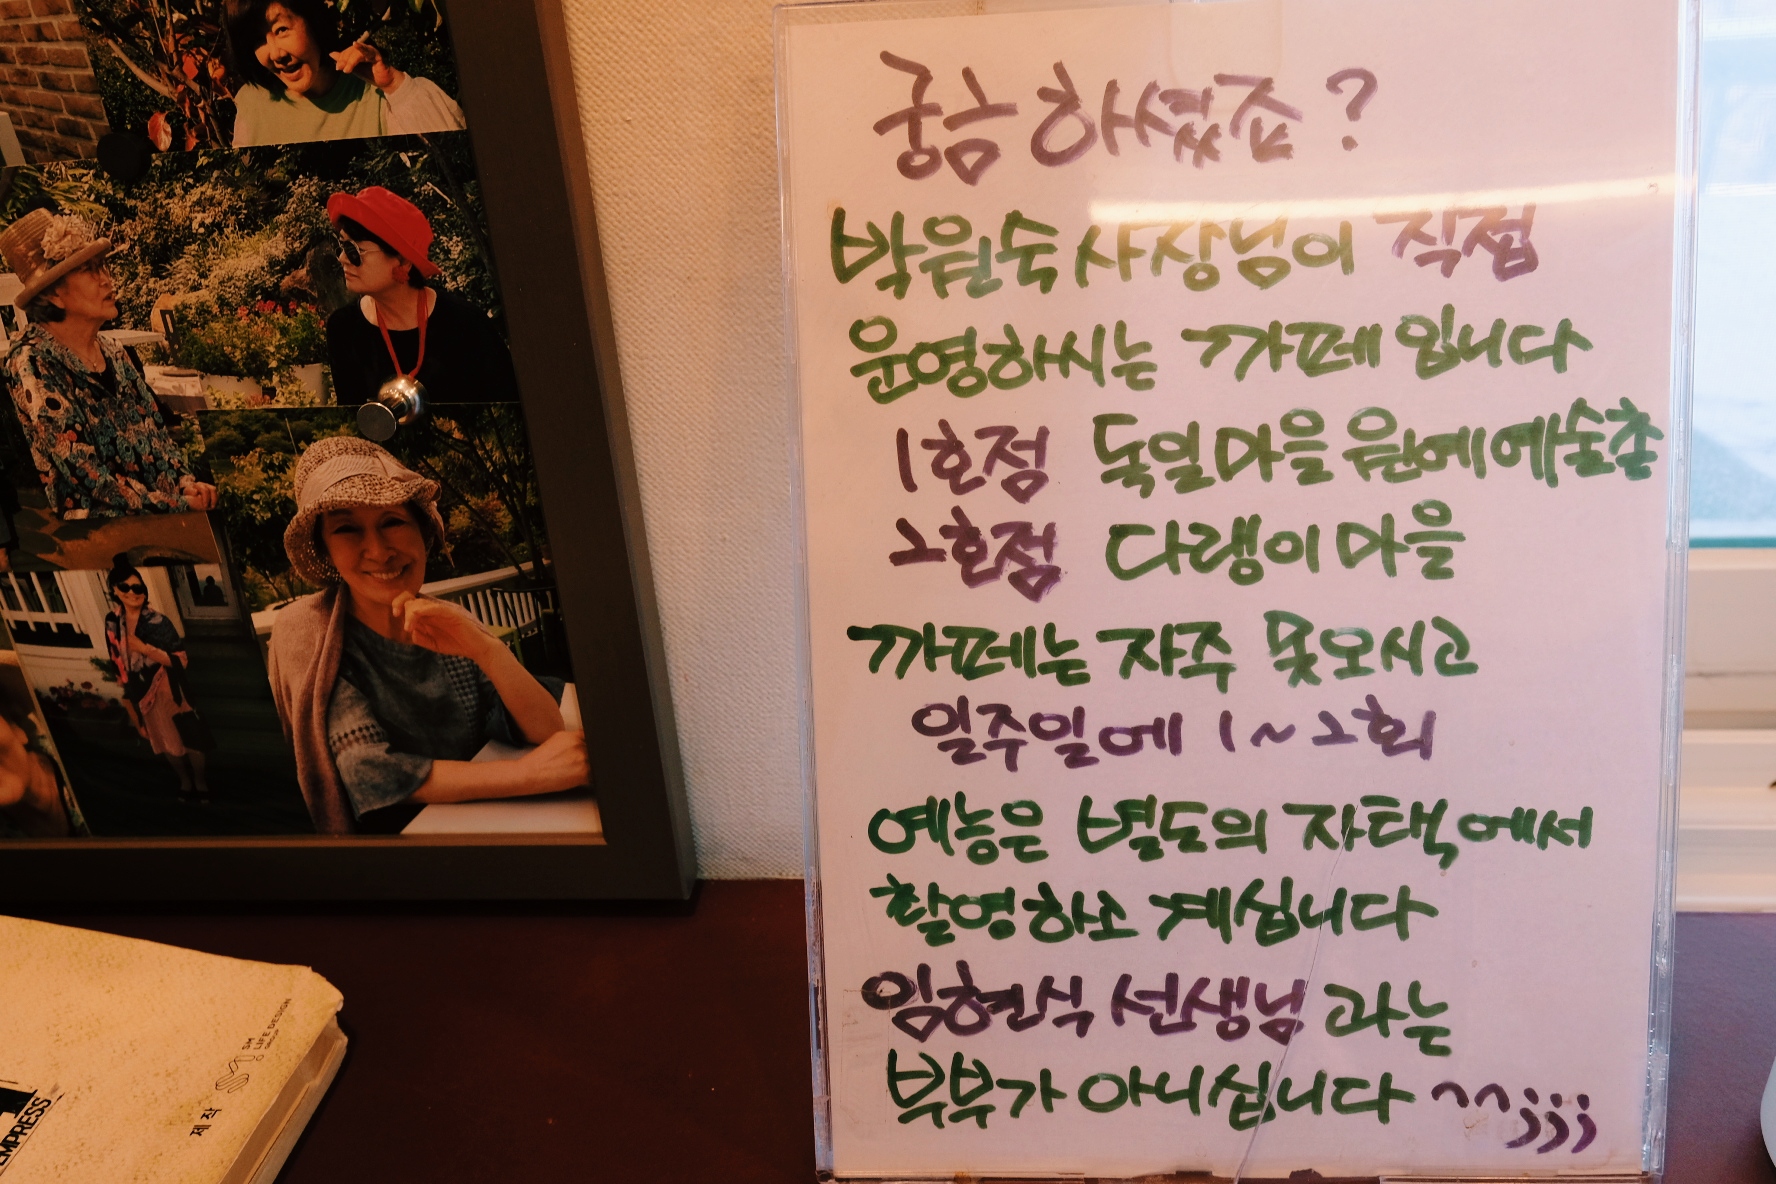 궁금하셨죠?
박원숙 사장님이 직접
운영하시는 까페입니다
1호점 독일마을 원예예술촌
2호점 다랭이마을
까페는 자주 못오시고
일주일에 1~2회
예능은 별도의 자택에서
촬영하고 계십니다
임현식 선생님과는
부부가 아니십니다 ^^;;;
제작
SM
LIFE DESIGN
GROUP
EMPRESS